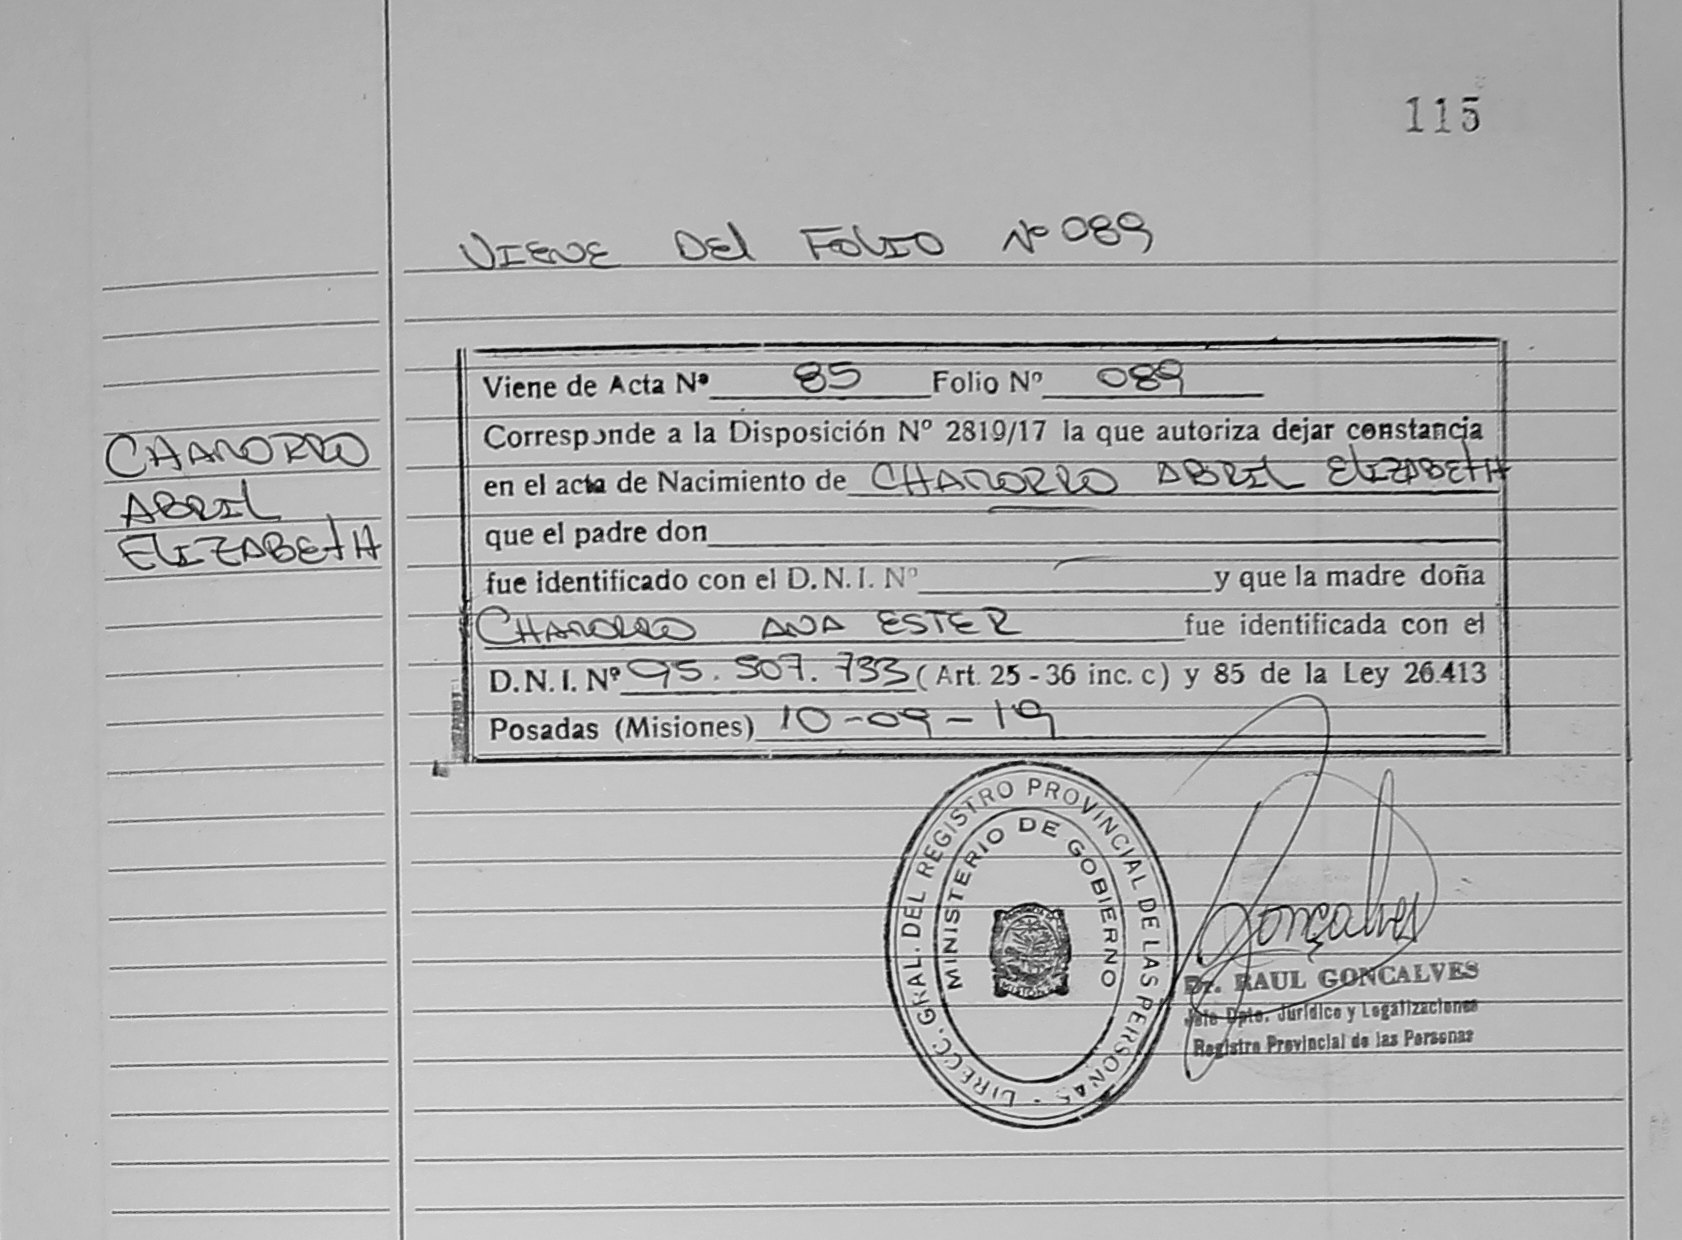 115
VIENE DEL FOLIO Nº 089
Viene de Acta Nº 85 Folio Nº 089
Corresponde a la Disposición Nº 2819/17 la que autoriza dejar constancia
en el acta de Nacimiento de CHAMORRO ABRIL ELIZABETH
que el padre don
fue identificado con el D.N.I. Nº y que la madre doña
CHAMORRO ANA ESTER fue identificada con el
D.N.I. Nº 95.507.733 (Art. 25 - 36 inc. c) y 85 de la Ley 26.413
Posadas (Misiones) 10-09-19
CHAMORRO
ABRIL
ELIZABETH
DIRECC. GRAL. DEL REGISTRO PROVINCIAL DE LAS PERSONAS -
MINISTERIO DE GOBIERNO
MISIONES
Goncalves
Dr. RAUL GONCALVES
Jefe Dpto. Jurídico y Legalizaciones
Registro Provincial de las Personas